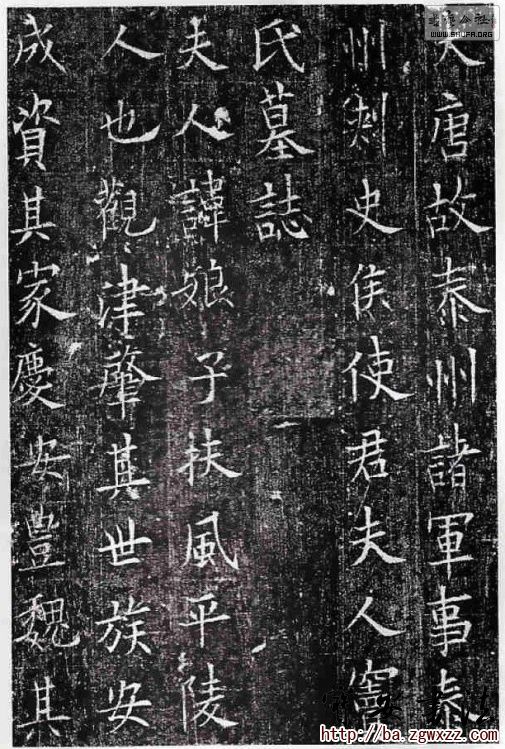 大唐故泰州諸軍事泰
州刺史侯使君夫人竇
氏墓誌
夫人諱娘子扶風平陵
人也觀津肇其世族安
成資其家慶安豊魏其
書法公社
www.SHUFA.ORG
http://ba.zgwxzz.com